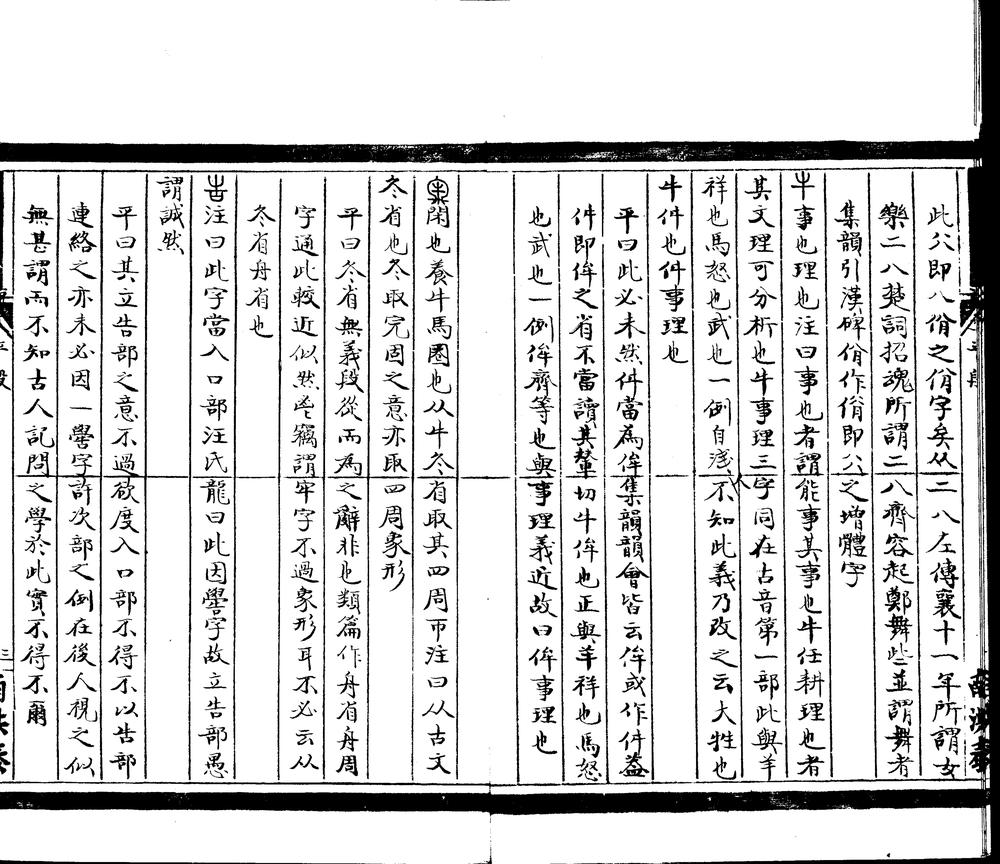 此㕣即八佾之佾字矣从二八左傳襄十一年所謂女
樂二八楚詞招魂所謂二八齊容起鄭舞些並謂舞者
集韻引漢碑佾作佾即㕣之增體字
牛事也理也注曰事也者謂能事其事也牛任耕理也者
其文理可分析也牛事理三字同在古音第一部此與羊
祥也馬怒也武也一例自淺人不知此義乃改之云大牲也
牛件也件事理也
平曰此必未然件當為侔集韻韻會皆云侔或作件蓋
件即侔之省不當讀其輦切牛侔也正與羊祥也馬怒
也武也一例侔齊等也與事理義近故曰侔事理也
閑也養牛馬圈也从牛冬省取其四周帀注曰从古文
冬省也冬取完固之意亦取四周象形
平曰冬省無義段從而為之辭非也類篇作舟省舟周
字通此較近似然鄙竊謂牢字不過象形耳不必云从
冬省舟省也
告注曰此字當入口部汪氏龍曰此因嚳字故立告部愚
謂誠然
平曰其立告部之意不過欲度入口部不得不以告部
連絡之亦未必因一嚳字許次部之例在後人視之似
無甚謂而不知古人記問之學於此實不得不爾